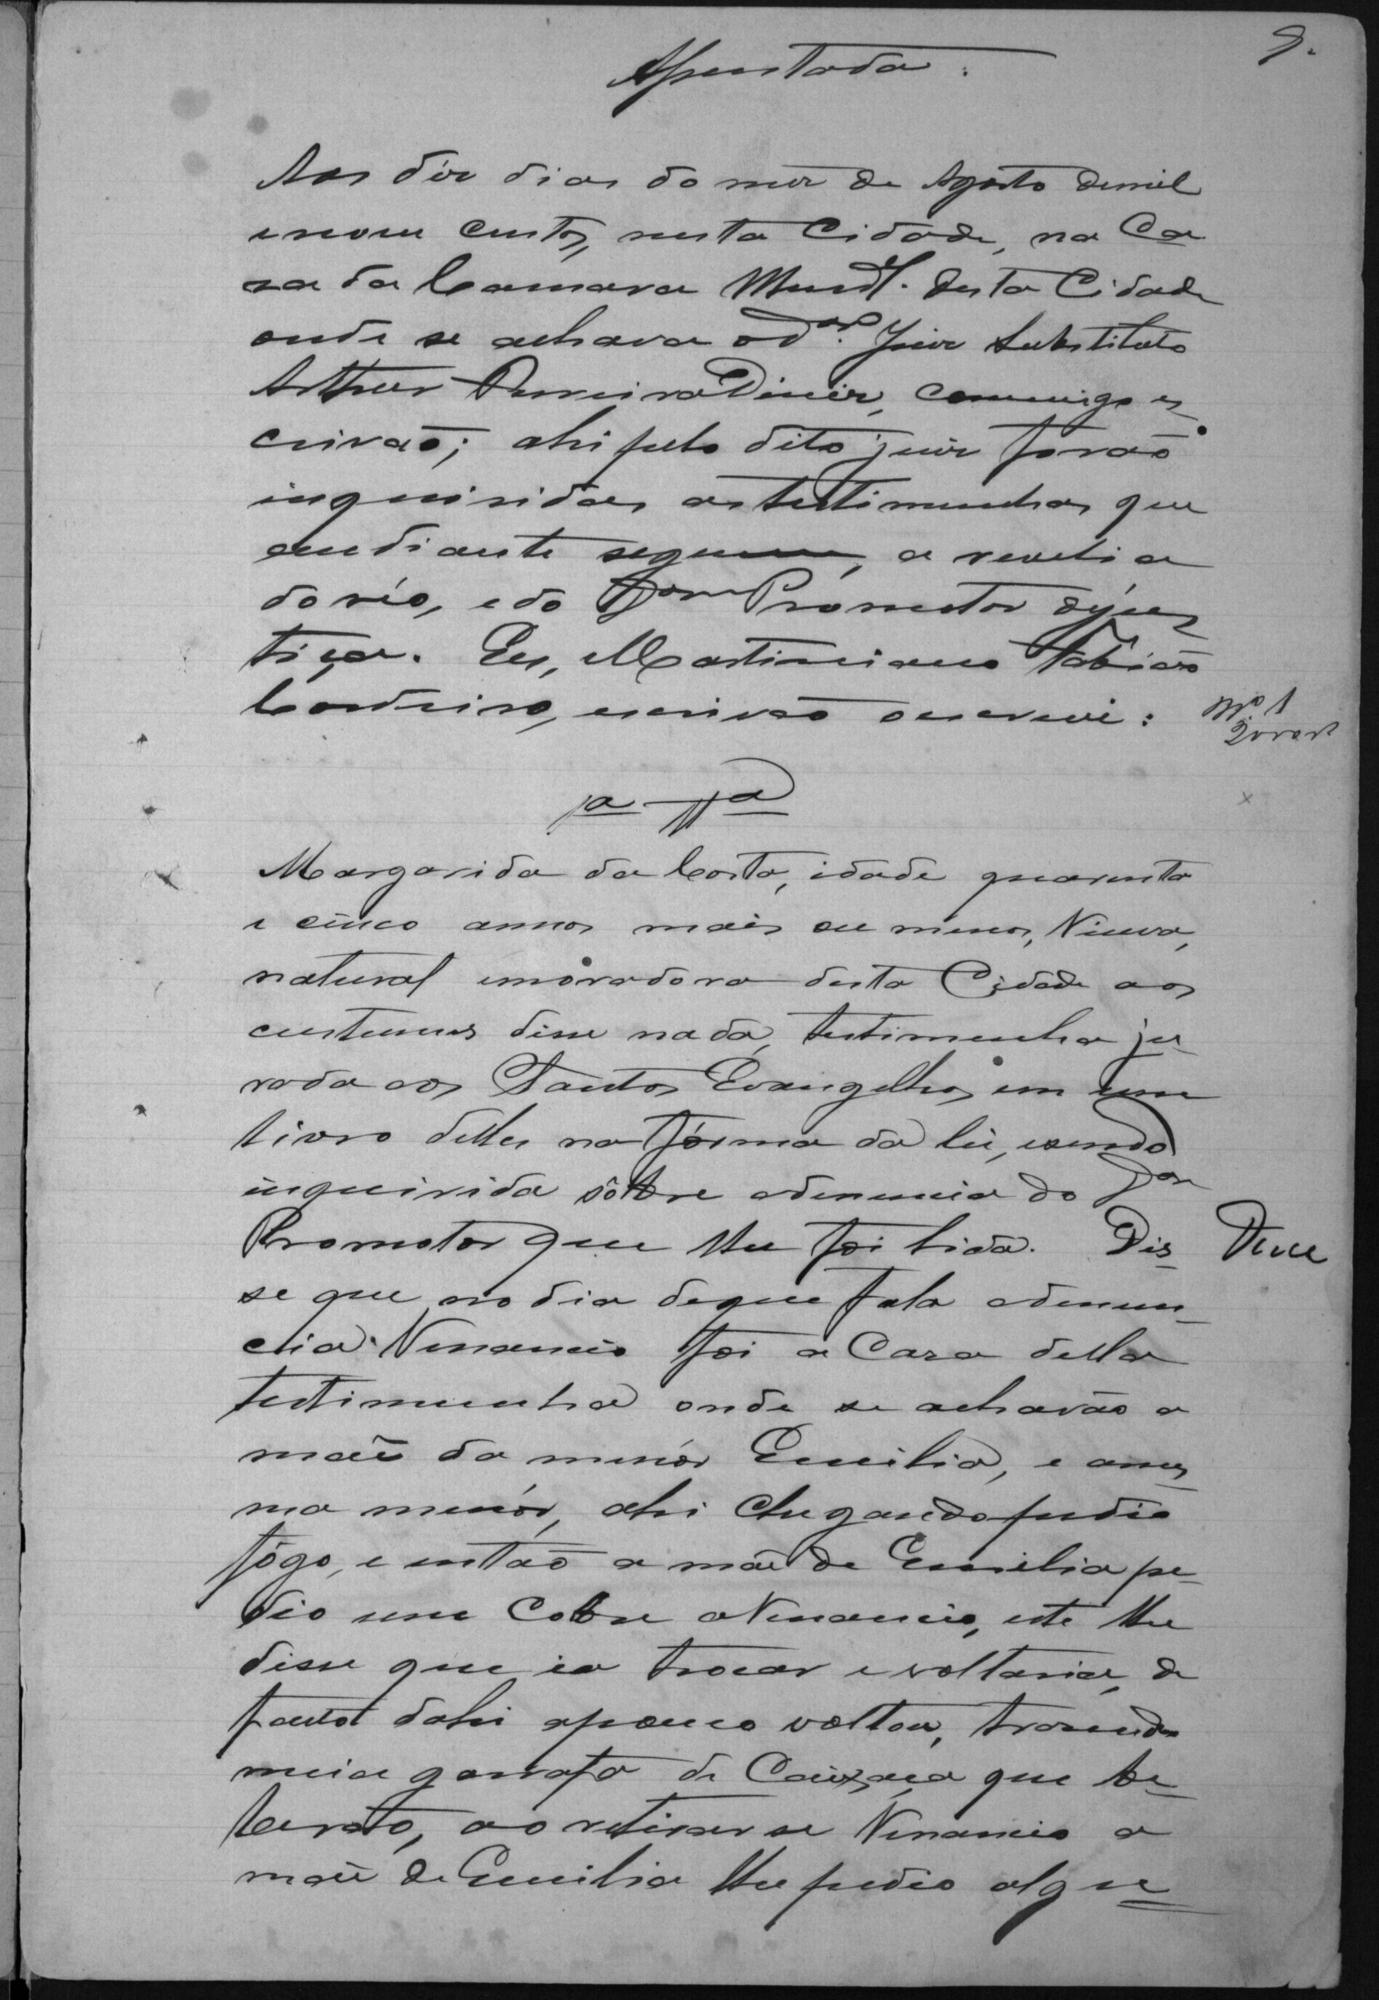 9.
Assentada.
Aos déz dias do mez de Agosto de mil
e nove centos, nesta Cidade, na Ca
za da Camara Munal. desta Cidade
onde se achava o Dor. Juiz Substituto
Arthur Pereira Diniz, commigo es
crivaõ; ahi pelo dito juiz foraõ
inquiridas as testimunhas que
em diante seguem, a revelia
do réo, e do Dor Promotor de jus
tiça. Eu, Martiniano Fabiaõ
Cordeiro, escrivaõ o escrevi:
1a Ta
Margarida da Costa, idade quarenta
e cinco annos mais ou menos, Viuva,
natural e moradora desta Cidade aos
custumes disse nada, testimunha ju
rada aos Santos Evangelhos em um
livro delles na fórma da lei, e sendo
inquirida sôbre a denuncia do Dor
Promotor que lhe foi lida. Dis
Disse
se que no dia de que fala a denun
cia Venancio foi a Caza della
testimunha onde se achavão a
mai da menór Emilia, e a mes
ma menór, ahi chegando pedio
fógo, e entaõ a mãi de Emilia pe
dio um Cobre a Venancio, este lhe
disse que ia trocar e voltaria, de
facto dahi a pouco voltou, trazendo
meia garrafa de Caixaça que be
beraõ, ao retirar se Venancio a
mai de Emilia lhe pedio algu